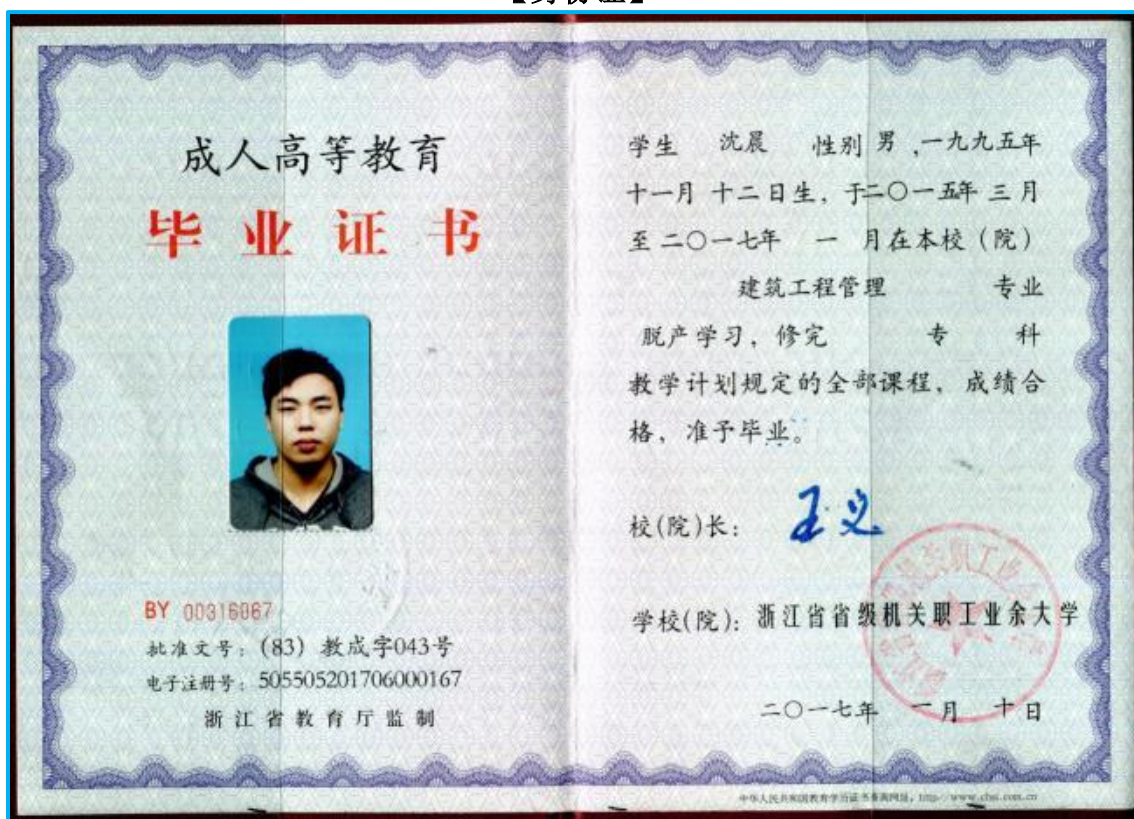 成人高等教育
毕业证书
BY 00316067
批准文号：(83) 教成字043号
电子注册号：505505201706000167
浙江省教育厅监制
学生 沈晨 性别 男 ,一九九五年
十一月 十二日生，于二〇一五年 三 月
至 二〇一七年 一 月在本校（院）
建筑工程管理 专业
脱产学习，修完 专 科
教学计划规定的全部课程，成绩合
格，准予毕业。
校(院)长：王义
学校(院)：浙江省省级机关职工业余大学
二〇一七年 一月 十日
中华人民共和国教育学历证书查询网址：http://www.chsi.com.cn